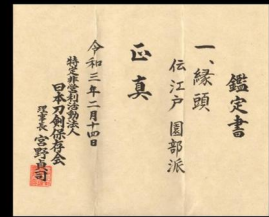 鑑定書
一、縁頭
伝江戸 園部派
正真
令和三年二月十四日
特定非営利活動法人
日本刀剣保存会
理事長 宮野貞司